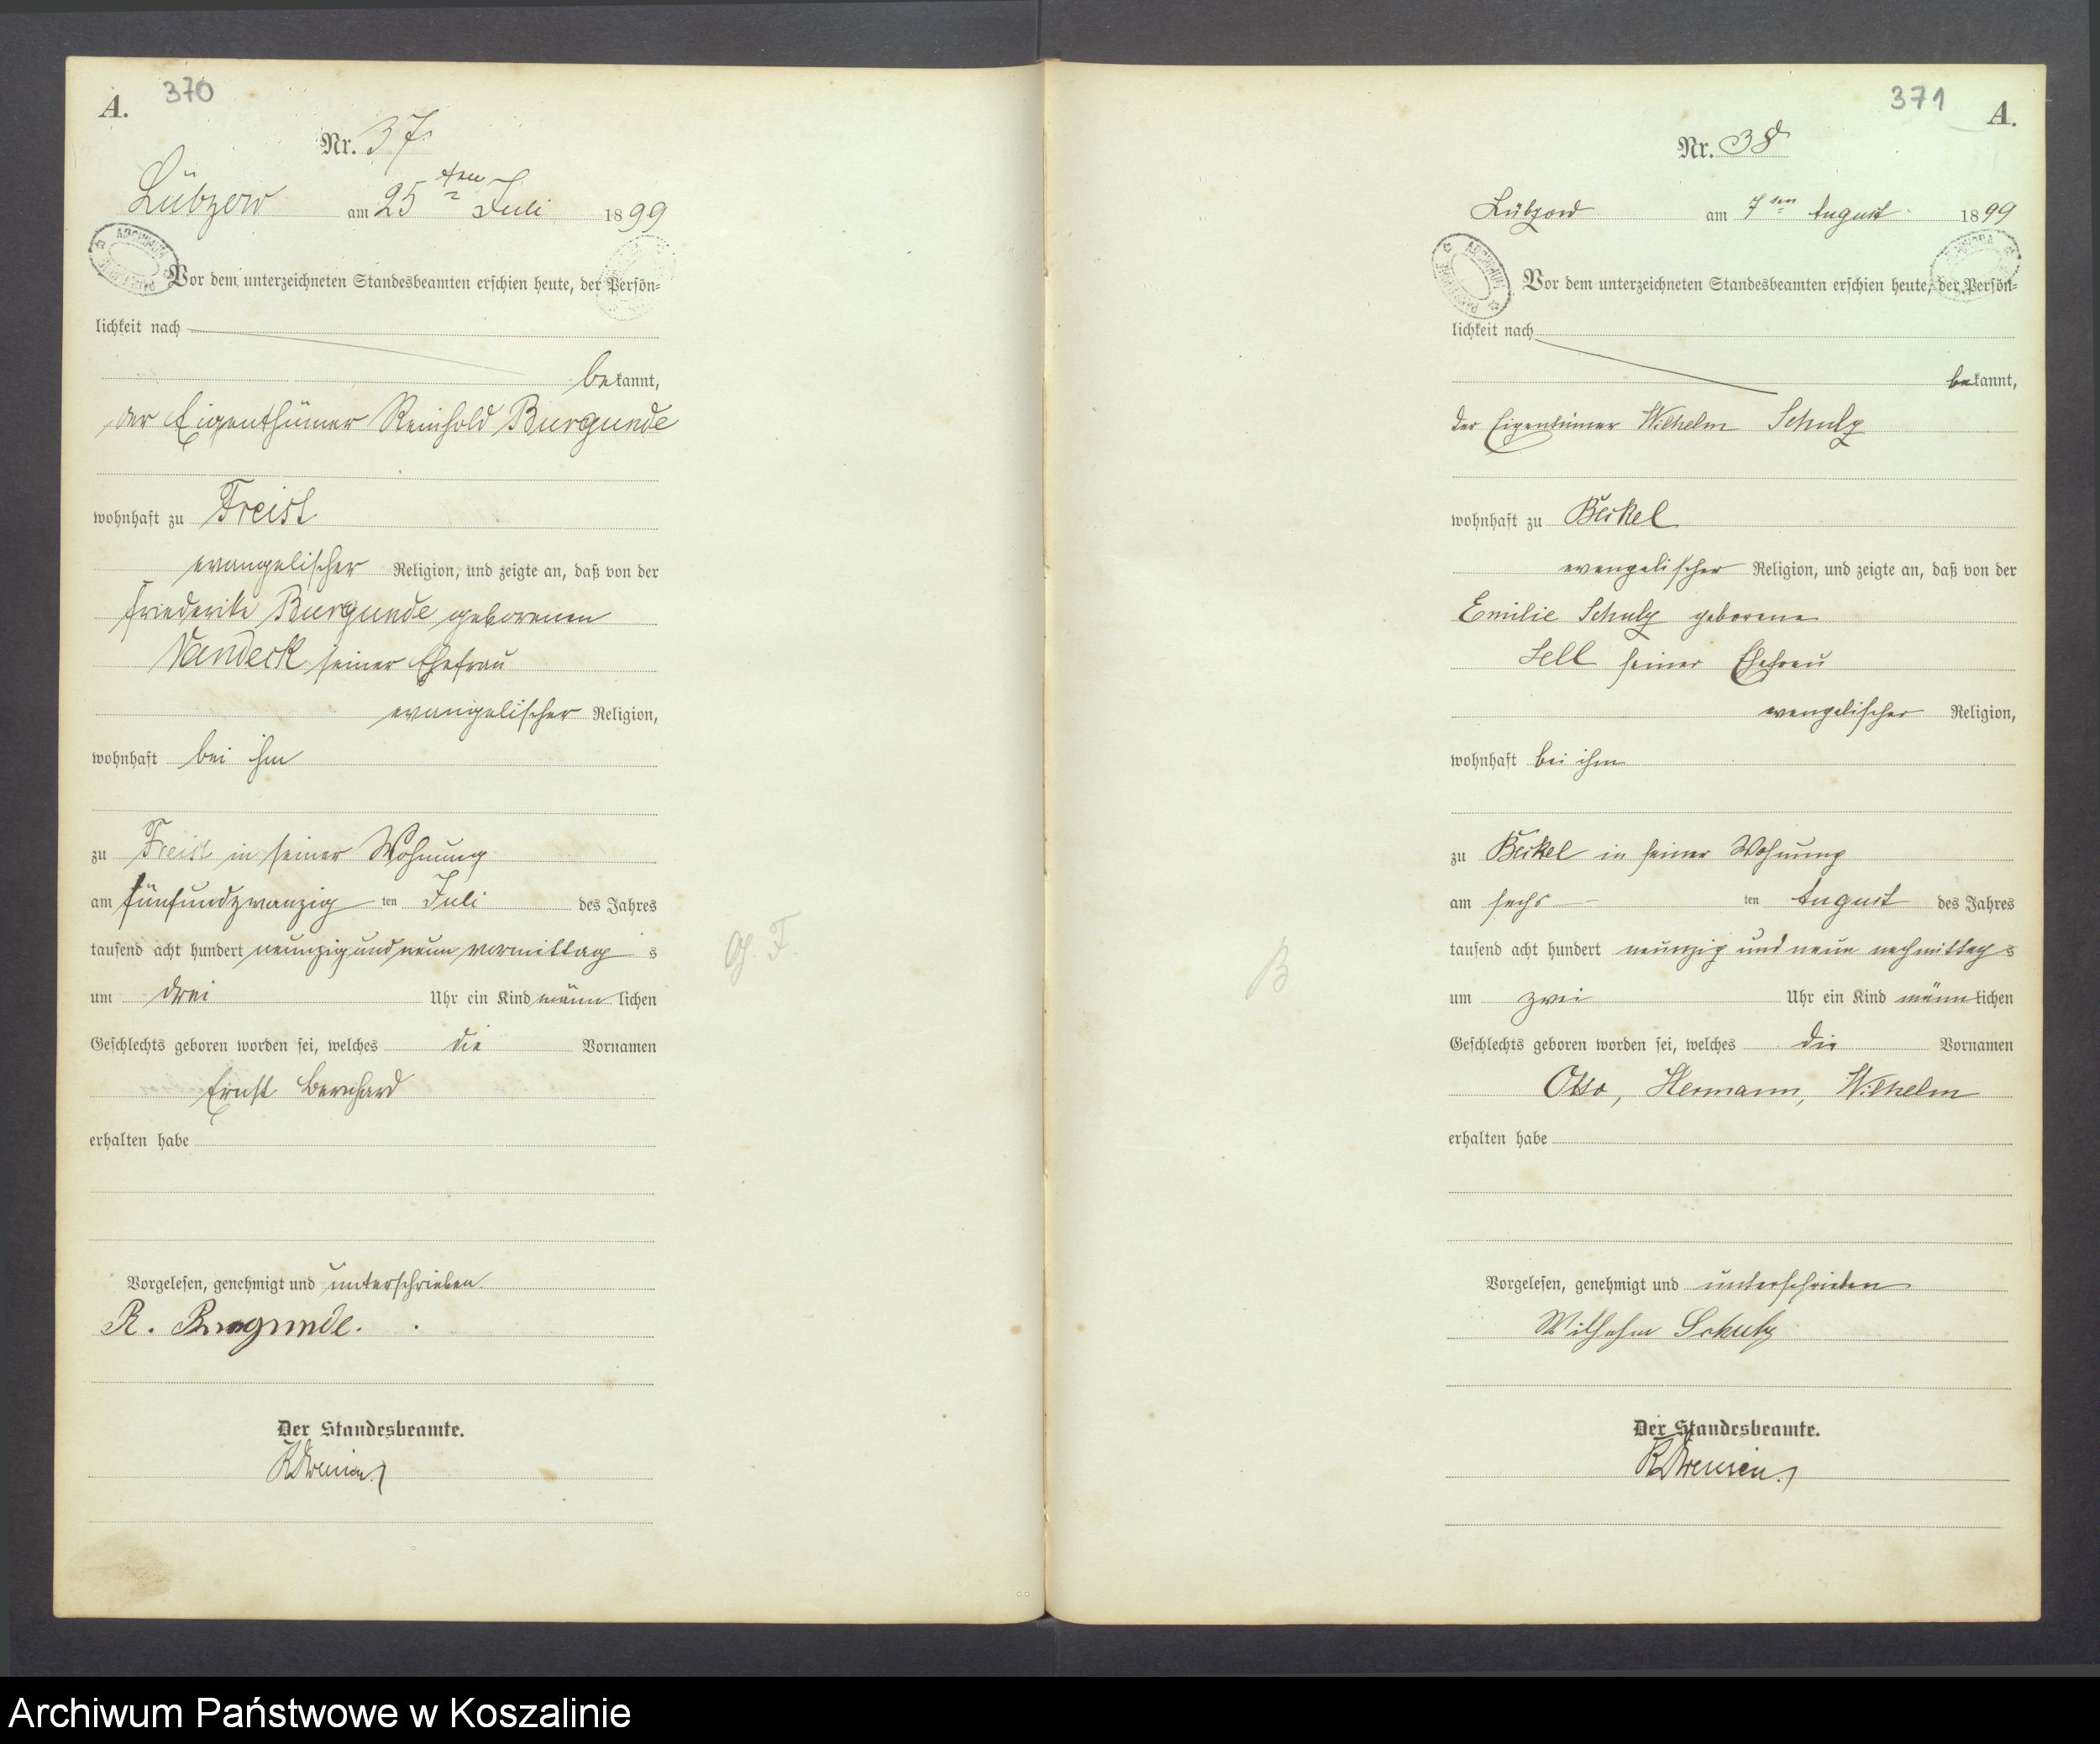 A.
370
Nr. 37.
Lübzow am 25ten Juli 1899
Vor dem unterzeichneten Standesbeamten erschien heute, der Persön-
lichkeit nach
bekannt,
der Eigenthümer Reinhold Burgunde
wohnhaft zu Freist
evangelischer Religion, und zeigte an, daß von der
Friederike Burgunde geborenen
Vandeck seiner Ehefrau
evangelischer Religion,
wohnhaft bei ihm
zu Freist in seiner Wohnung
am fünfundzwanzig ten Juli des Jahres
tausend acht hundert neunzig und neun vormittag s
um drei Uhr ein Kind männlichen
Geschlechts geboren worden sei, welches die Vornamen
Ernst Bernhard
erhalten habe
Vorgelesen, genehmigt und unterschrieben.
R. Burgunde.
Der Standesbeamte.
G. F.
371
A.
Nr. 38
Lübzow am 7ten August 1899
Vor dem unterzeichneten Standesbeamten erschien heute, der Persön-
lichkeit nach
bekannt,
der Eigentümer Wilhelm Schulz
wohnhaft zu Beckel
evangelischer Religion, und zeigte an, daß von der
Emilie Schulz geborene
Sell seiner Ehefrau
evangelischer Religion,
wohnhaft bei ihm
zu Beckel in seiner Wohnung
am sechs ten August des Jahres
tausend acht hundert neunzig und neun nachmittag s
um zwei Uhr ein Kind männlichen
Geschlechts geboren worden sei, welches die Vornamen
Otto, Hermann, Wilhelm
erhalten habe
Vorgelesen, genehmigt und unterschrieben
Wilhelm Schulz
Der Standesbeamte.
B
Archiwum Państwowe w Koszalinie